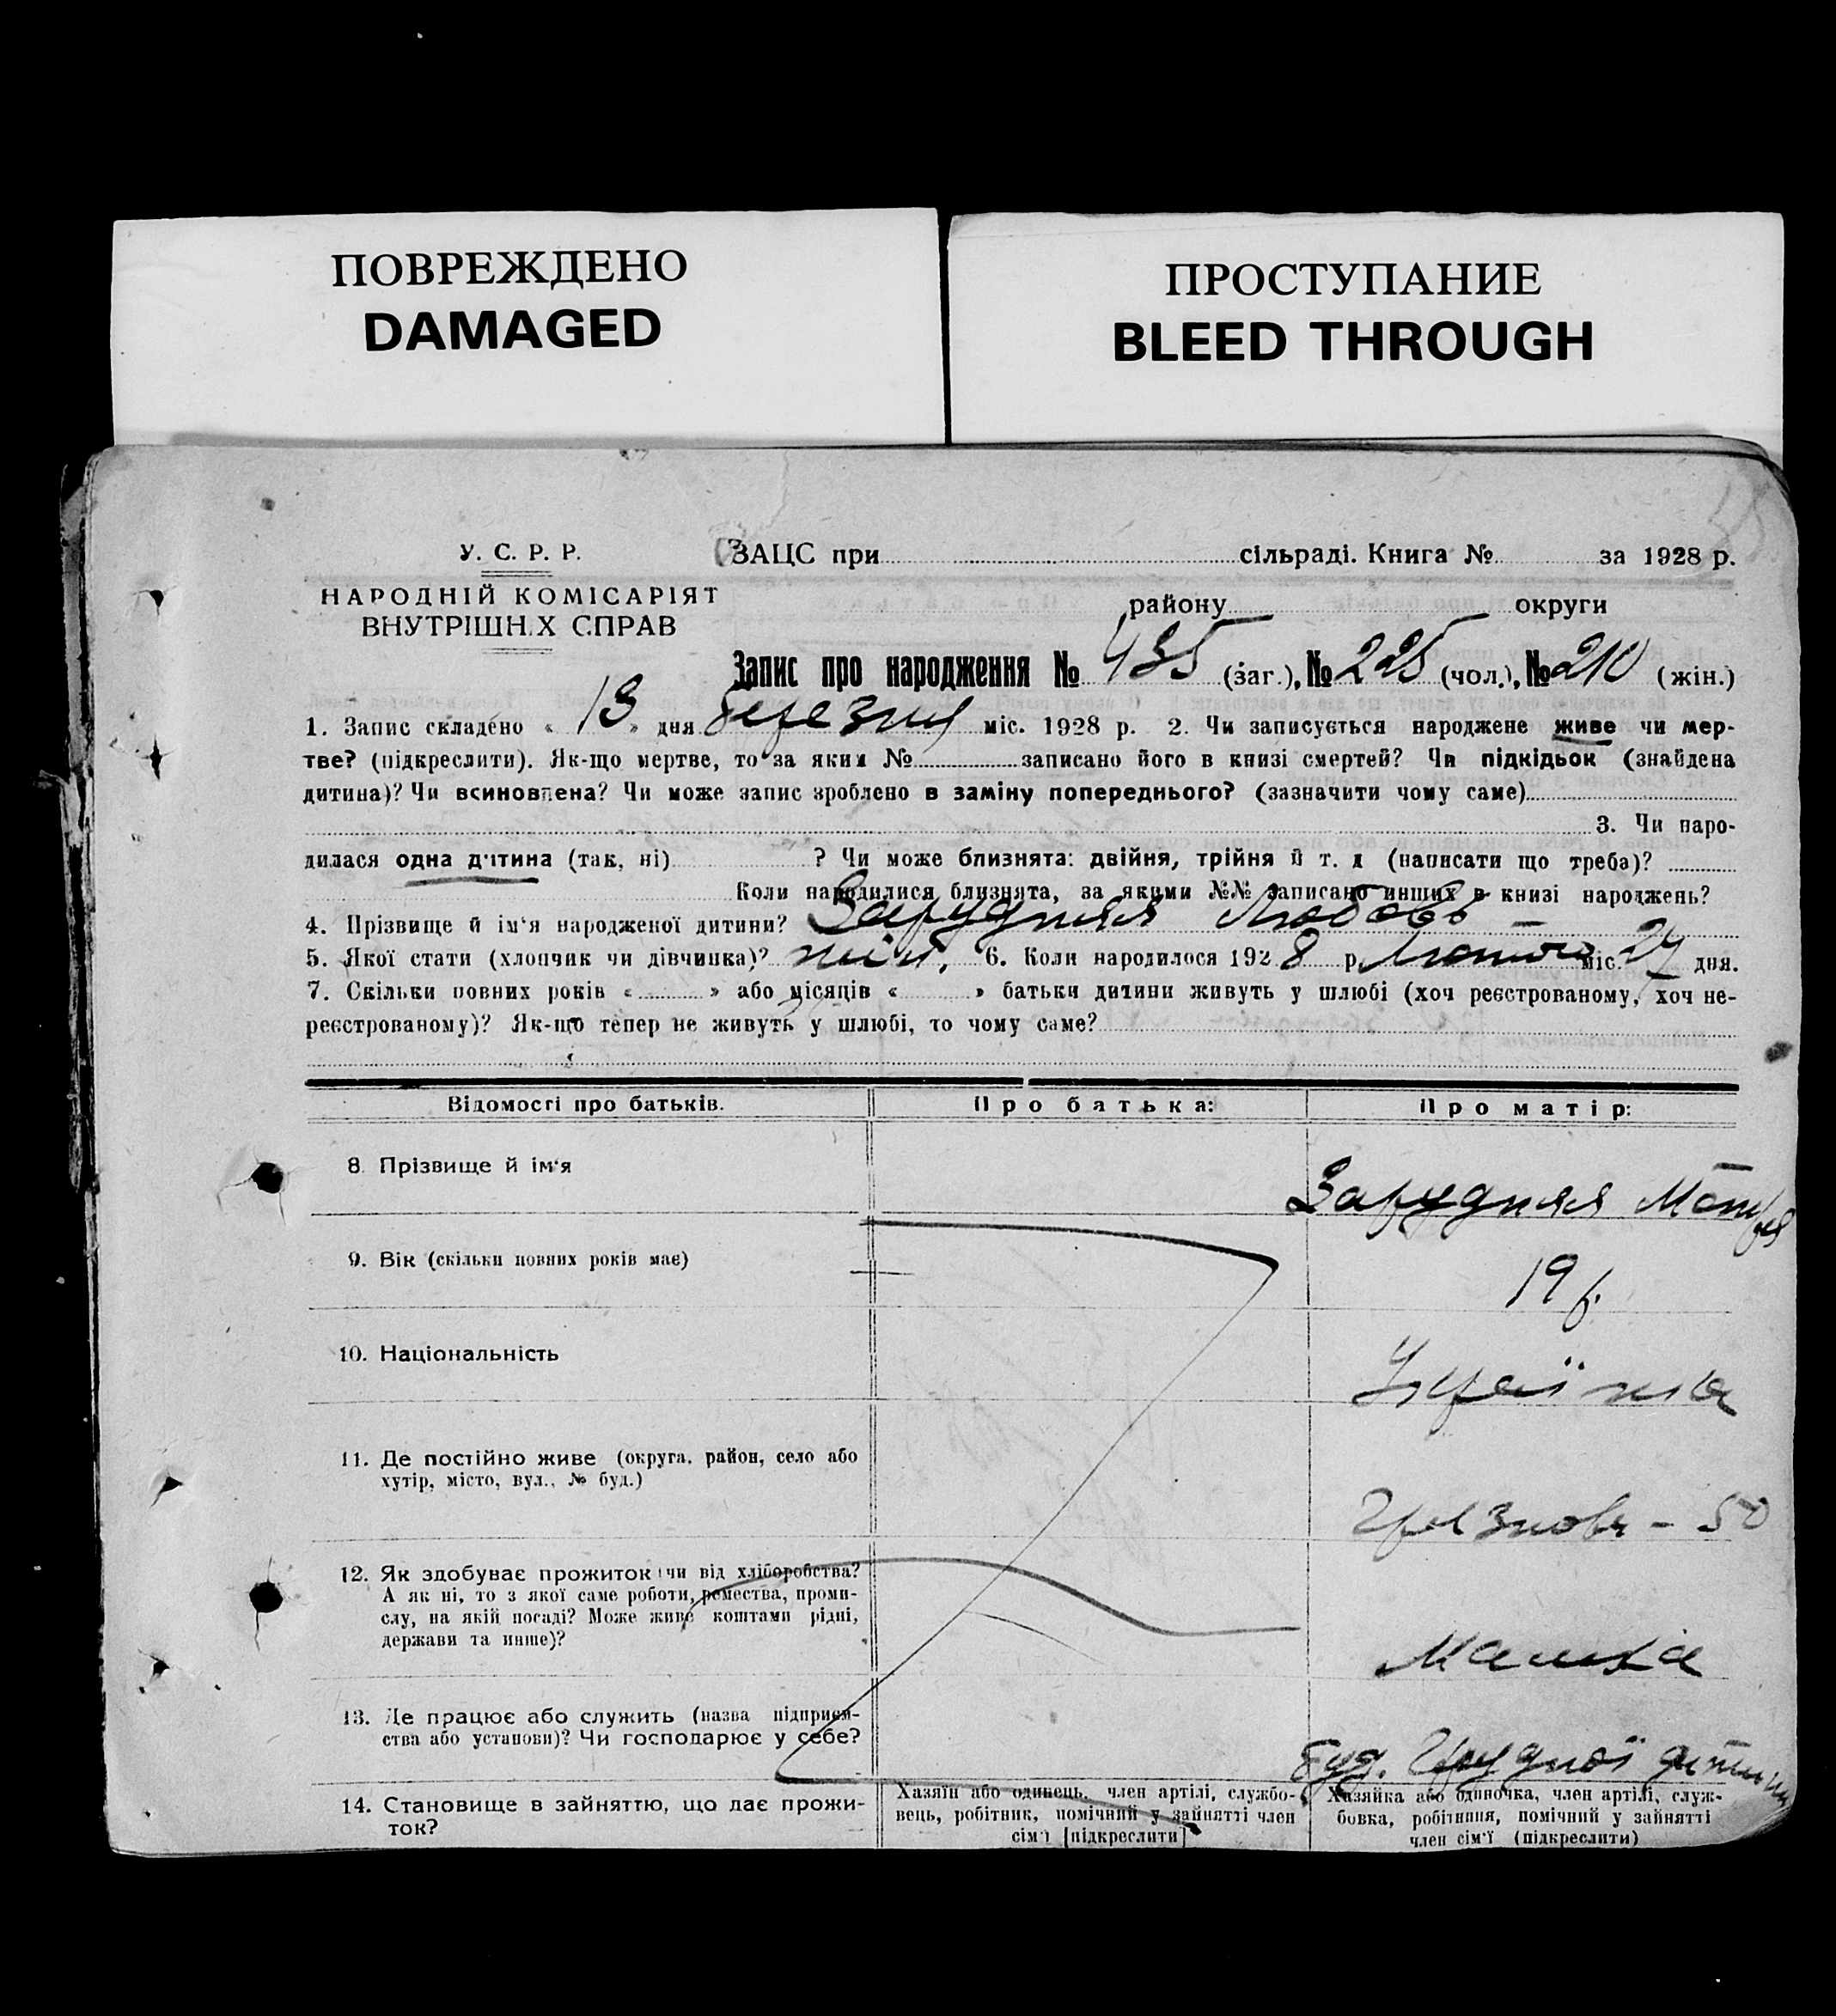 ПОВРЕЖДЕНО
DAMAGED
ПРОСТУПАНИЕ
BLEED THROUGH
У. С. Р. Р.
НАРОДНІЙ КОМІСАРІЯТ
ВНУТРІШН.Х СПРАВ
ЗАЦС при сільраді. Книга № за 1928 р.
району округи
Запис про народження № 435 (заг.), № 225 (чол.), № 210 (жін.)
1. Запис складено « 13 » дня березня міс. 1928 р. 2. Чи записується народжене живе чи мер-
тве? (підкреслити). Як-що мертве, то за яким № записано його в книзі смертей? Чи підкідьок (знайдена
дитина)? Чи всиновлена? Чи може запис зроблено в заміну попереднього? (зазначити чому саме)
3. Чи наро-
дилася одна дитина (так, ні) ? Чи може близнята: двійня, трійня й т. д (написати що треба)?
Коли народилися близнята, за якими №№ записано инших в книзі народжень?
4. Прізвище й ім'я народженої дитини? Зарудняя Любовь
5. Якої стати (хлопчик чи дівчинка)? жін. 6. Коли народилося 1928 р. Лютого міс. 27 дня.
7. Скільки повних років « » або місяців « » батьки дитини живуть у шлюбі (хоч реєстрованому, хоч не-
реєстрованому)? Як-що тепер не живуть у шлюбі, то чому саме?
Відомості про батьків.
Про батька:
Про матір:
8. Прізвище й ім'я
Зарудняя Мотря
9. Вік (скільки повних років має)
19 р.
10. Національність
Українка
11. Де постійно живе (округа, район, село або
хутір, місто, вул., № буд.)
50
12. Як здобуває прожиток чи від хліборобства?
А як ні, то з якої саме роботи, ремества, проми-
слу, на якій посаді? Може живе коштами рідні,
держави та инше)?
Мамка
13. Де працює або служить (назва підприєм-
ства або установи)? Чи господарює у себе?
буд. Грудної дитини
14. Становище в зайняттю, що дає прожи-
ток?
Хазяїн або одинець, член артілі, службо-
вець, робітник, помічний у зайнятті член
сім'ї [підкреслити]
Хазяйка або одиночка, член артілі, служ-
бовка, робітниця, помічний у зайнятті
член сім'ї (підкреслити)